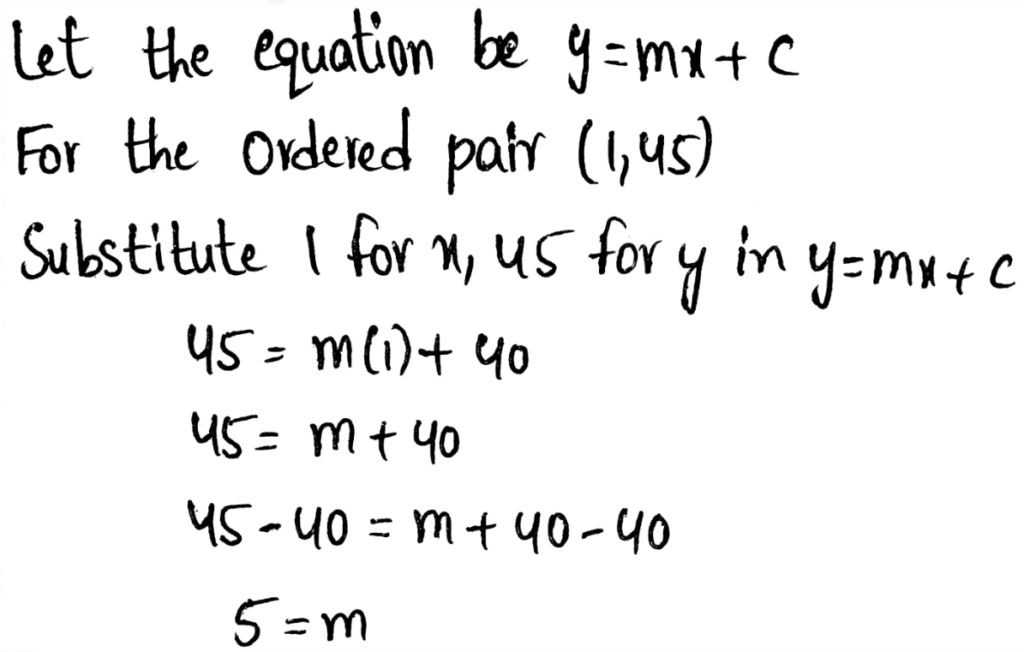 Let the equation be y=mx+c
For the Ordered pair (1,45)
Substitute 1 for x, 45 for y in y=mx+c
45 = m(1)+ 40
45 = m + 40
45 - 40 = m + 40 - 40
5 = m